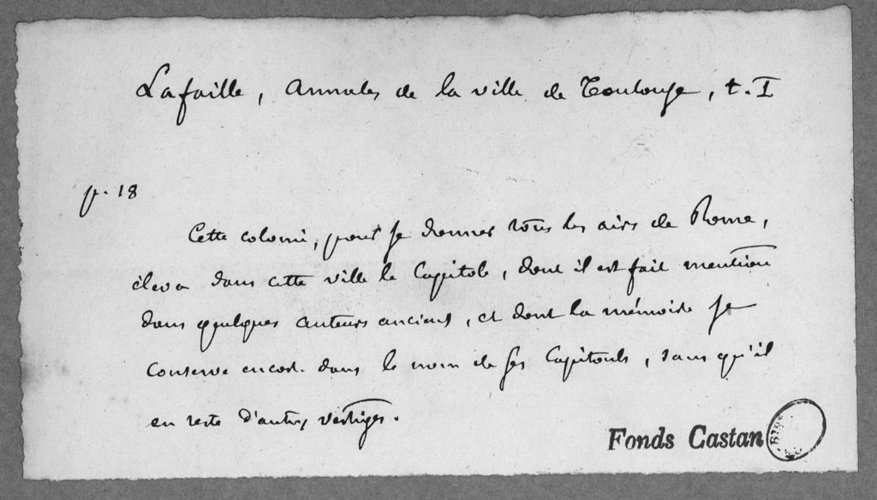 Lafaille, Annales de la ville de Toulouse, t. I
p. 18
Cette colonie, pour se donner tous les airs de Rome,
éleva dans cette ville le Capitole, dont il est fait mention
dans quelques auteurs anciens, et dont la mémoire se
conserve encor. dans le nom de ses Capitouls, sans qu'il
en reste d'autres vestiges.
Fonds Castan